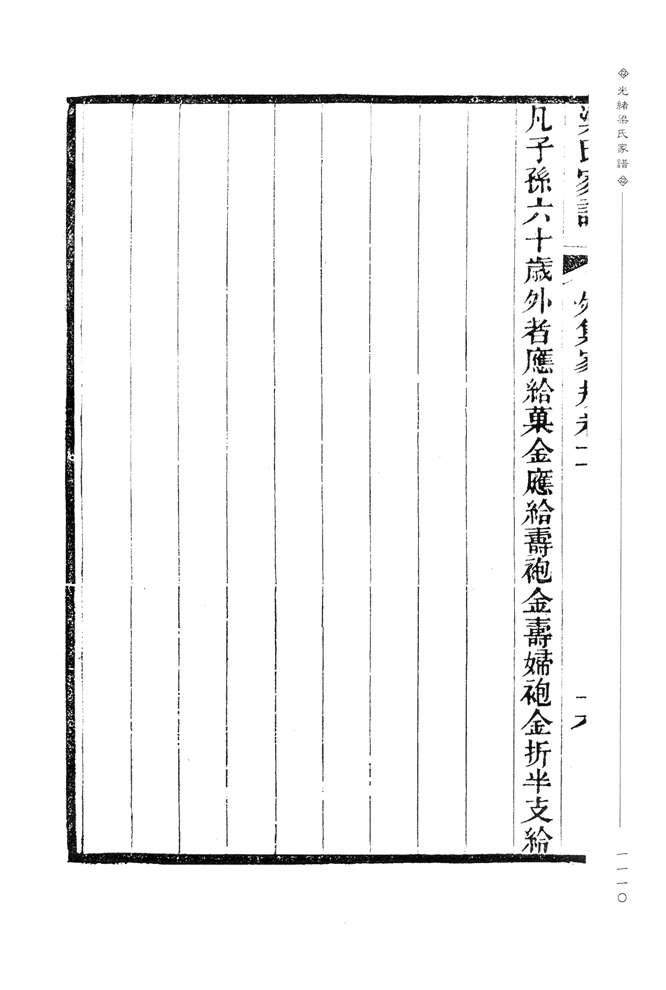 光緒梁氏家譜
梁氏家譜 外集家規卷二 十六
凡子孫六十歲外者應給菓金應給壽袍金壽婦袍金折半支給
一一一〇